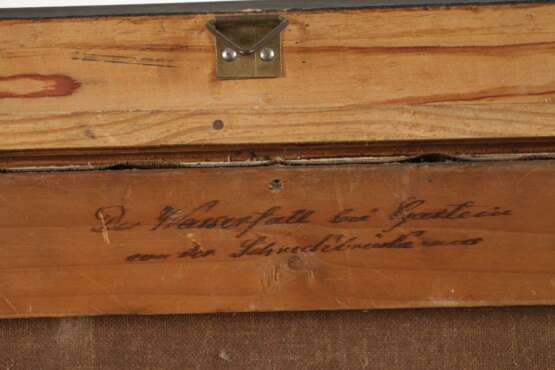 Der Wasserfall bei Gastein
von der Schreckbrücke aus